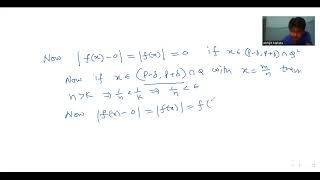 Now |f(x)-0| = |f(x)| = 0 if x ∈ (p-δ, p+δ) ∩ Qᶜ
Now if x ∈ (p-δ, p+δ) ∩ Q with x = m/n then
n > K ⇒ 1/n < 1/K ⇒ 1/n < ε
Now |f(x)-0| = |f(x)| = f(